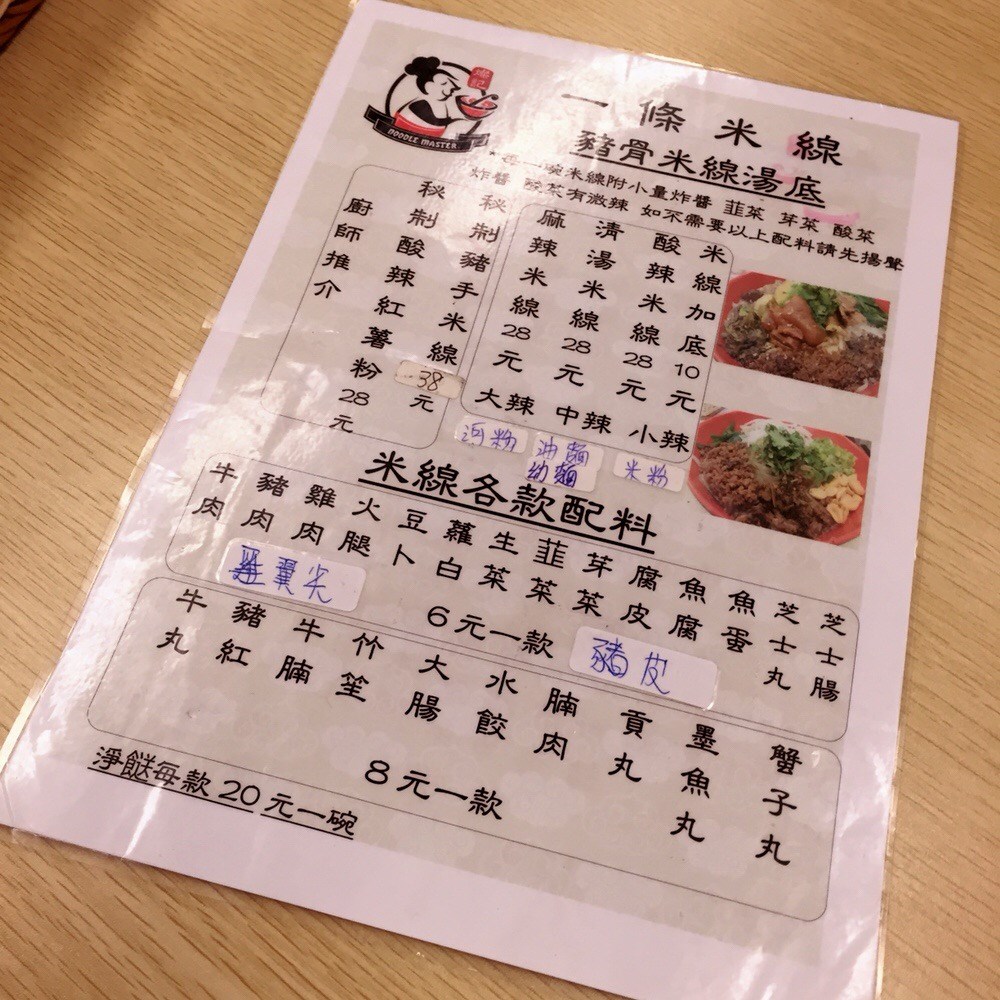 楊記
NOODLE MASTER
一條米線
豬骨米線湯底
*每一碗米線附小量炸醬 韮菜 芽菜 酸菜
炸醬 酸菜有微辣 如不需要以上配料請先揚聲
米線加底10元
酸辣米線28元 小辣
清湯米線28元 中辣
麻辣米線28元 大辣
秘制豬手米線38元
秘制酸辣紅薯粉28元
廚師推介
河粉
油麵
幼麵
米粉
米線各款配料
芝士腸
芝士丸
魚蛋
魚腐
腐皮
芽菜
韮菜
生菜
蘿白
豆卜
火腿
雞肉
豬肉
牛肉
雞翼尖
6元一款
豬皮
蟹子丸
墨魚丸
貢丸
腩肉
水餃
大腸
竹笙
牛腩
豬紅
牛丸
8元一款
淨餸每款20元一碗